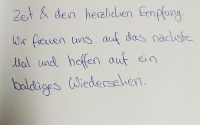 Zeit & den herzlichen Empfang.
Wir freuen uns auf das nächste
Mal und hoffen auf ein
baldiges Wiedersehen.